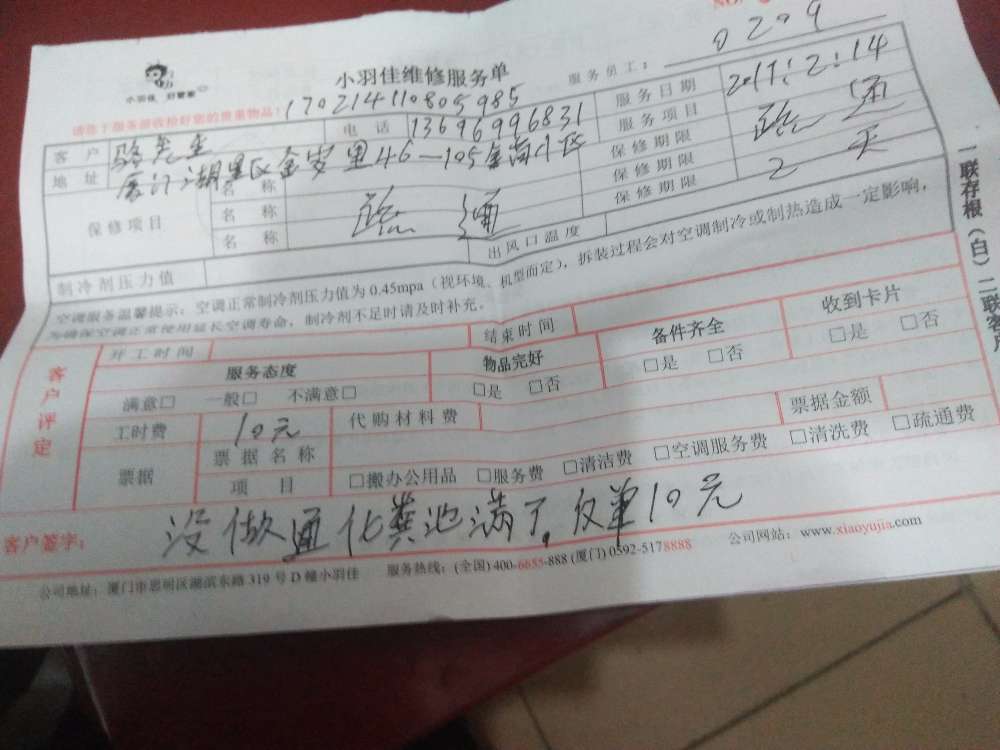 NO.
小羽佳 好管家
小羽佳维修服务单
服务员工： 0209
请您于服务前收检好您的贵重物品！ 170214110805985
服务日期 2017：2：14
客户 骆先生 电话 13696996831 服务项目
地址 厦门湖里区金安里46-105金尚小区 保修期限
保修项目 名称 保修期限 2天
名称 通 保修期限
名称 出风口温度
制冷剂压力值
空调服务温馨提示：空调正常制冷剂压力值为0.45mpa（视环境、机型而定），拆装过程会对空调制冷或制热造成一定影响，
为确保空调正常使用延长空调寿命，制冷剂不足时请及时补充。
一联存根（白）二联客户
客户评定
开工时间 结束时间
服务态度 物品完好 备件齐全 收到卡片
满意□ 一般□ 不满意□ □是 □否 □是 □否 □是 □否
工时费 10元 代购材料费 票据金额
票据 票据名称
项目 □搬办公用品 □服务费 □清洁费 □空调服务费 □清洗费 □疏通费
客户签字： 没做通化粪池满了，仅单10元
公司地址：厦门市思明区湖滨东路319号D幢小羽佳 服务热线：(全国)400-6655-888 (厦门)0592-5178888 公司网站：www.xiaoyujia.com